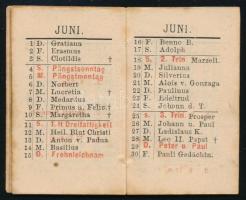 JUNI.
1 D. Gratiana
2 F. Erasmus
3 S. Clotildis †
4 S. Pfingstsonntag
5 M. Pfingstmontag
6 D. Norbert
7 M. Lucretia †
8 D. Medardus
9 F. Primus u. Felic. †
10 S. Margaretha †
11 S. 1. H. Dreifaltigkeit
12 M. Heil. Blut Christi
13 D. Anton v. Padua
14 M. Basilius
15 D. Frohnleichnam
JUNI.
16 F. Benno B.
17 S. Adolph
18 S. 2. Trin. Marzell.
19 M. Julianna
20 D. Silverius
21 M. Alois v. Gonzaga
22 D. Paulinus
23 F. Edeltrud
24 S. Johann d. T.
25 S. 3. Trin. Prosper
26 M. Johann u. Paul
27 D. Ladislaus K.
28 M. Leo II. Papst †
29 D. Peter u. Paul
30 F. Pauli Gedächtn.